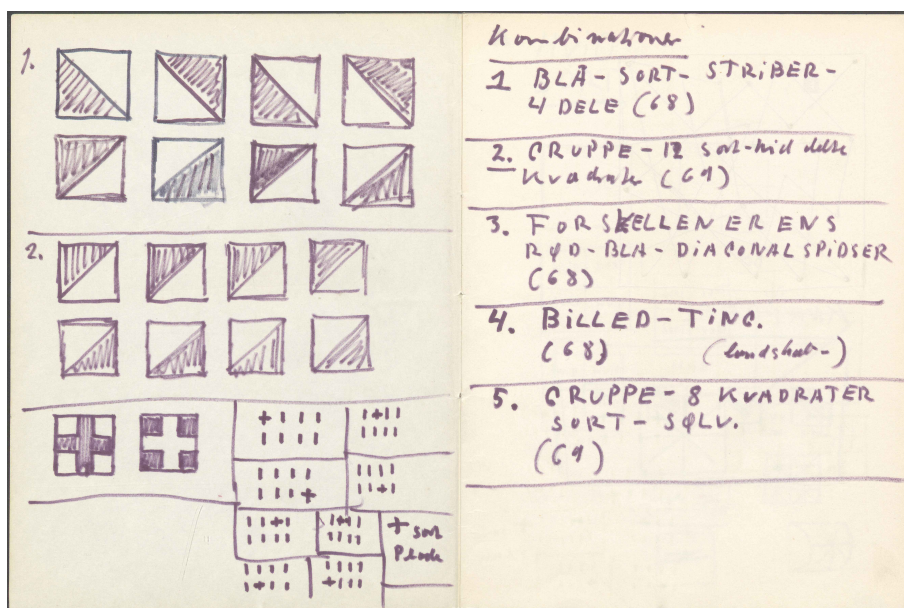 1.
2.
+ sort
Plade
Kombinationer
1 BLÅ-SORT-STRIBER-
4 DELE (68)
2. GRUPPE-12 sort-hvid delte
Kvadrater (69)
3. FORSKELLEN ER ENS
RØD-BLÅ-DIAGONALSPIDSER
(68)
4. BILLED-TING.
(68)
5. GRUPPE-8 KVADRATER
SORT-SØLV.
(69)